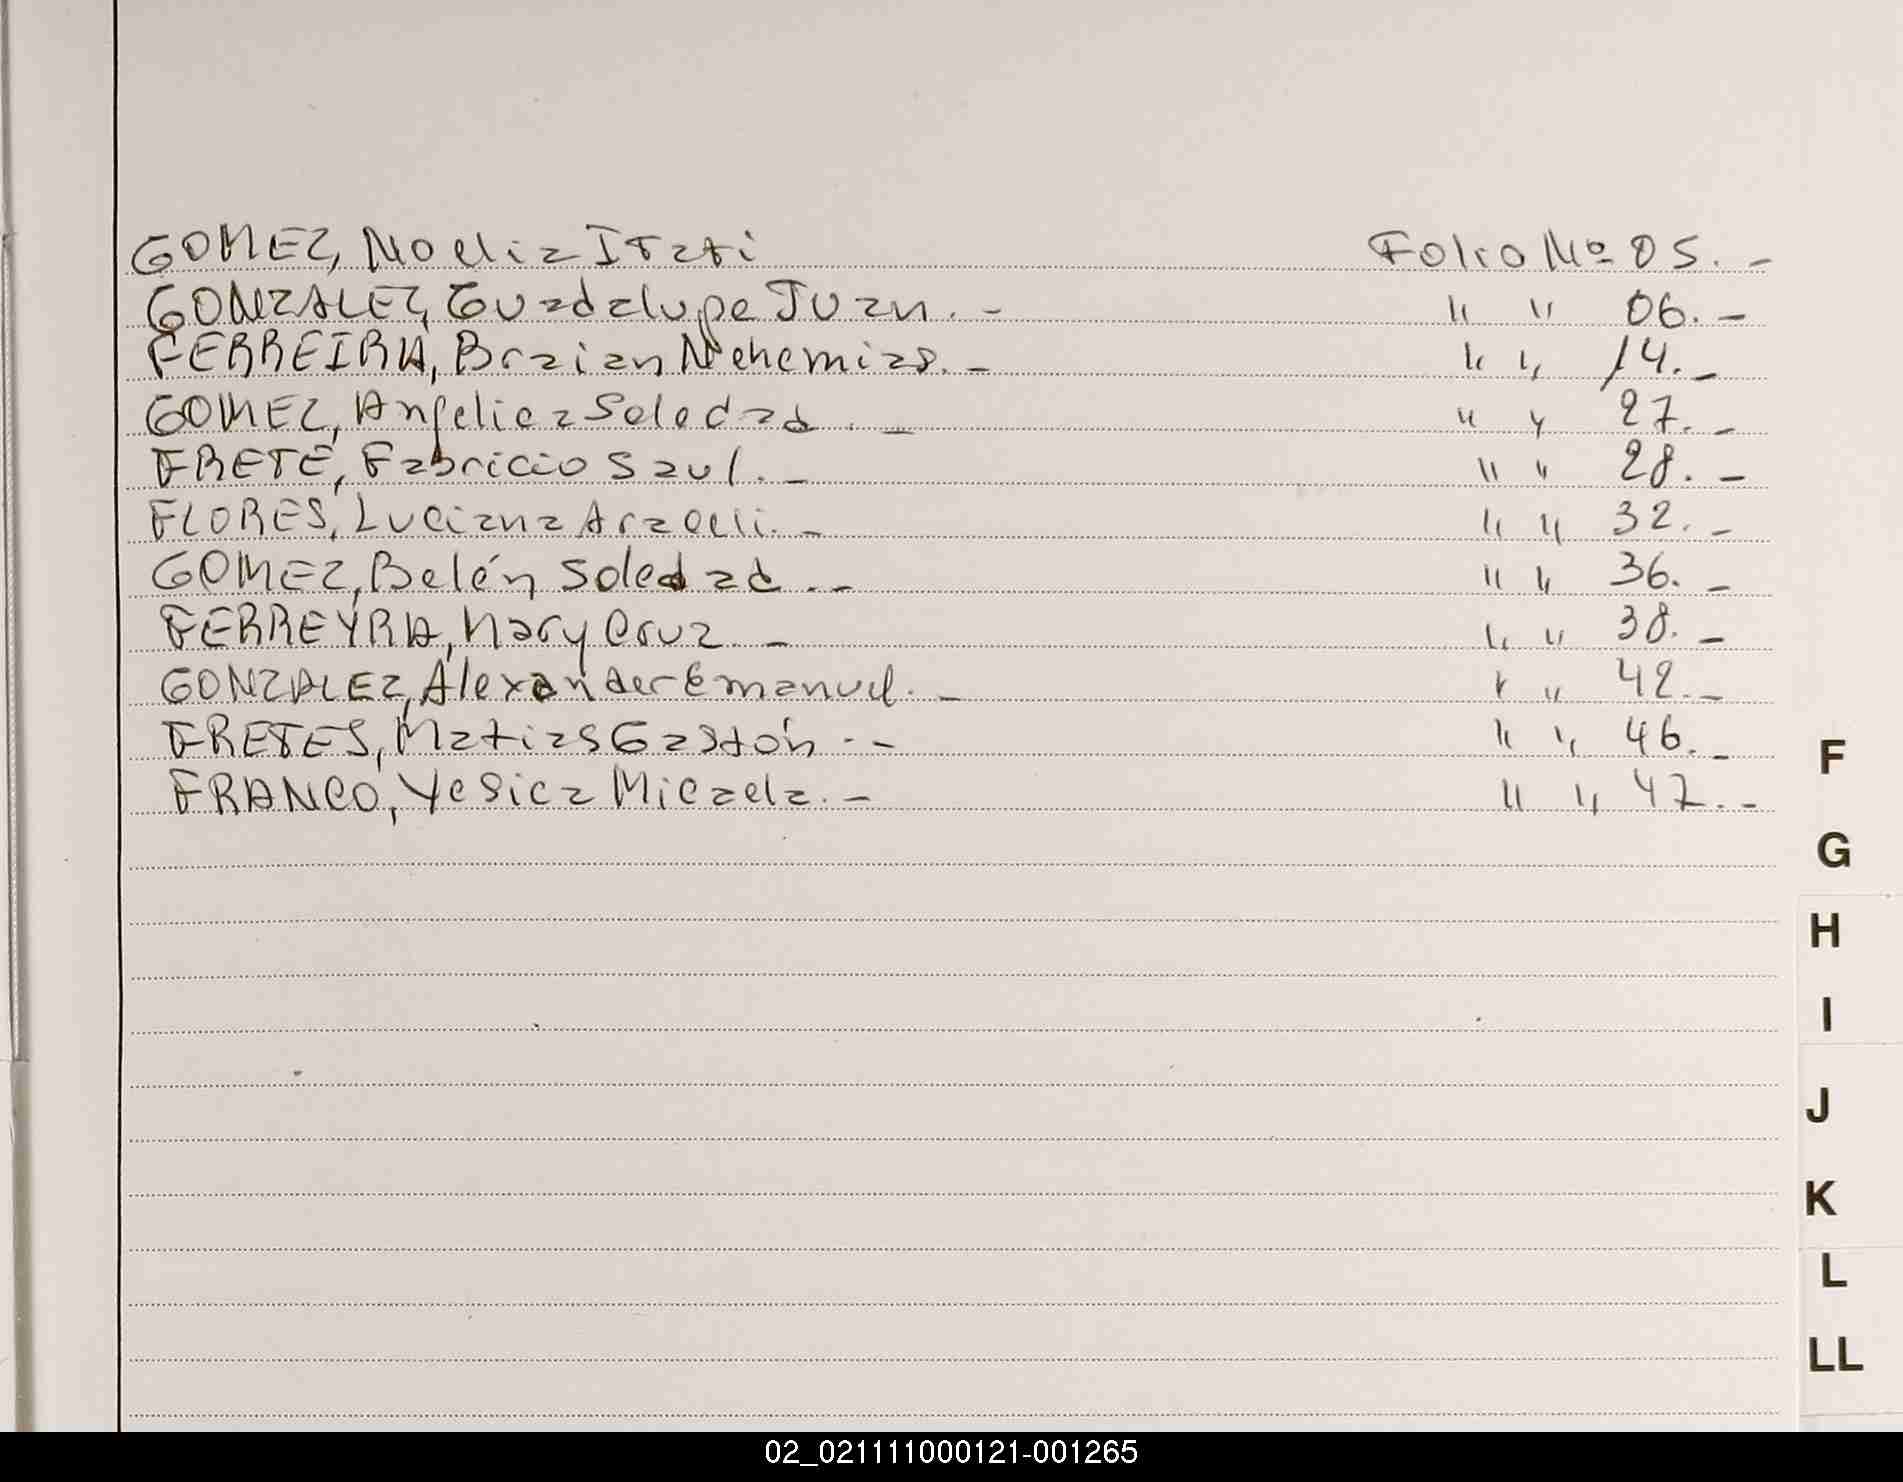 GOMEZ, Noelia Itati Folio Nº 05.-
GONZALEZ, Guadalupe Juan.- " " 06.-
FERREIRA, Braian Nehemias.- " " 14.-
GOMEZ, Angelica Soledad.- " " 27.-
FRETE, Fabricio Saul.- " " 28.-
FLORES, Luciana Araceli.- " " 32.-
GOMEZ, Belén Soledad.- " " 36.-
FERREYRA, Mary Cruz.- " " 38.-
GONZALEZ, Alexander Emanuel.- " " 42.-
FRETES, Matias Gastón.- " " 46.-
FRANCO, Yesica Micaela.- " " 47.-
F
G
H
I
J
K
L
LL
02_021111000121-001265